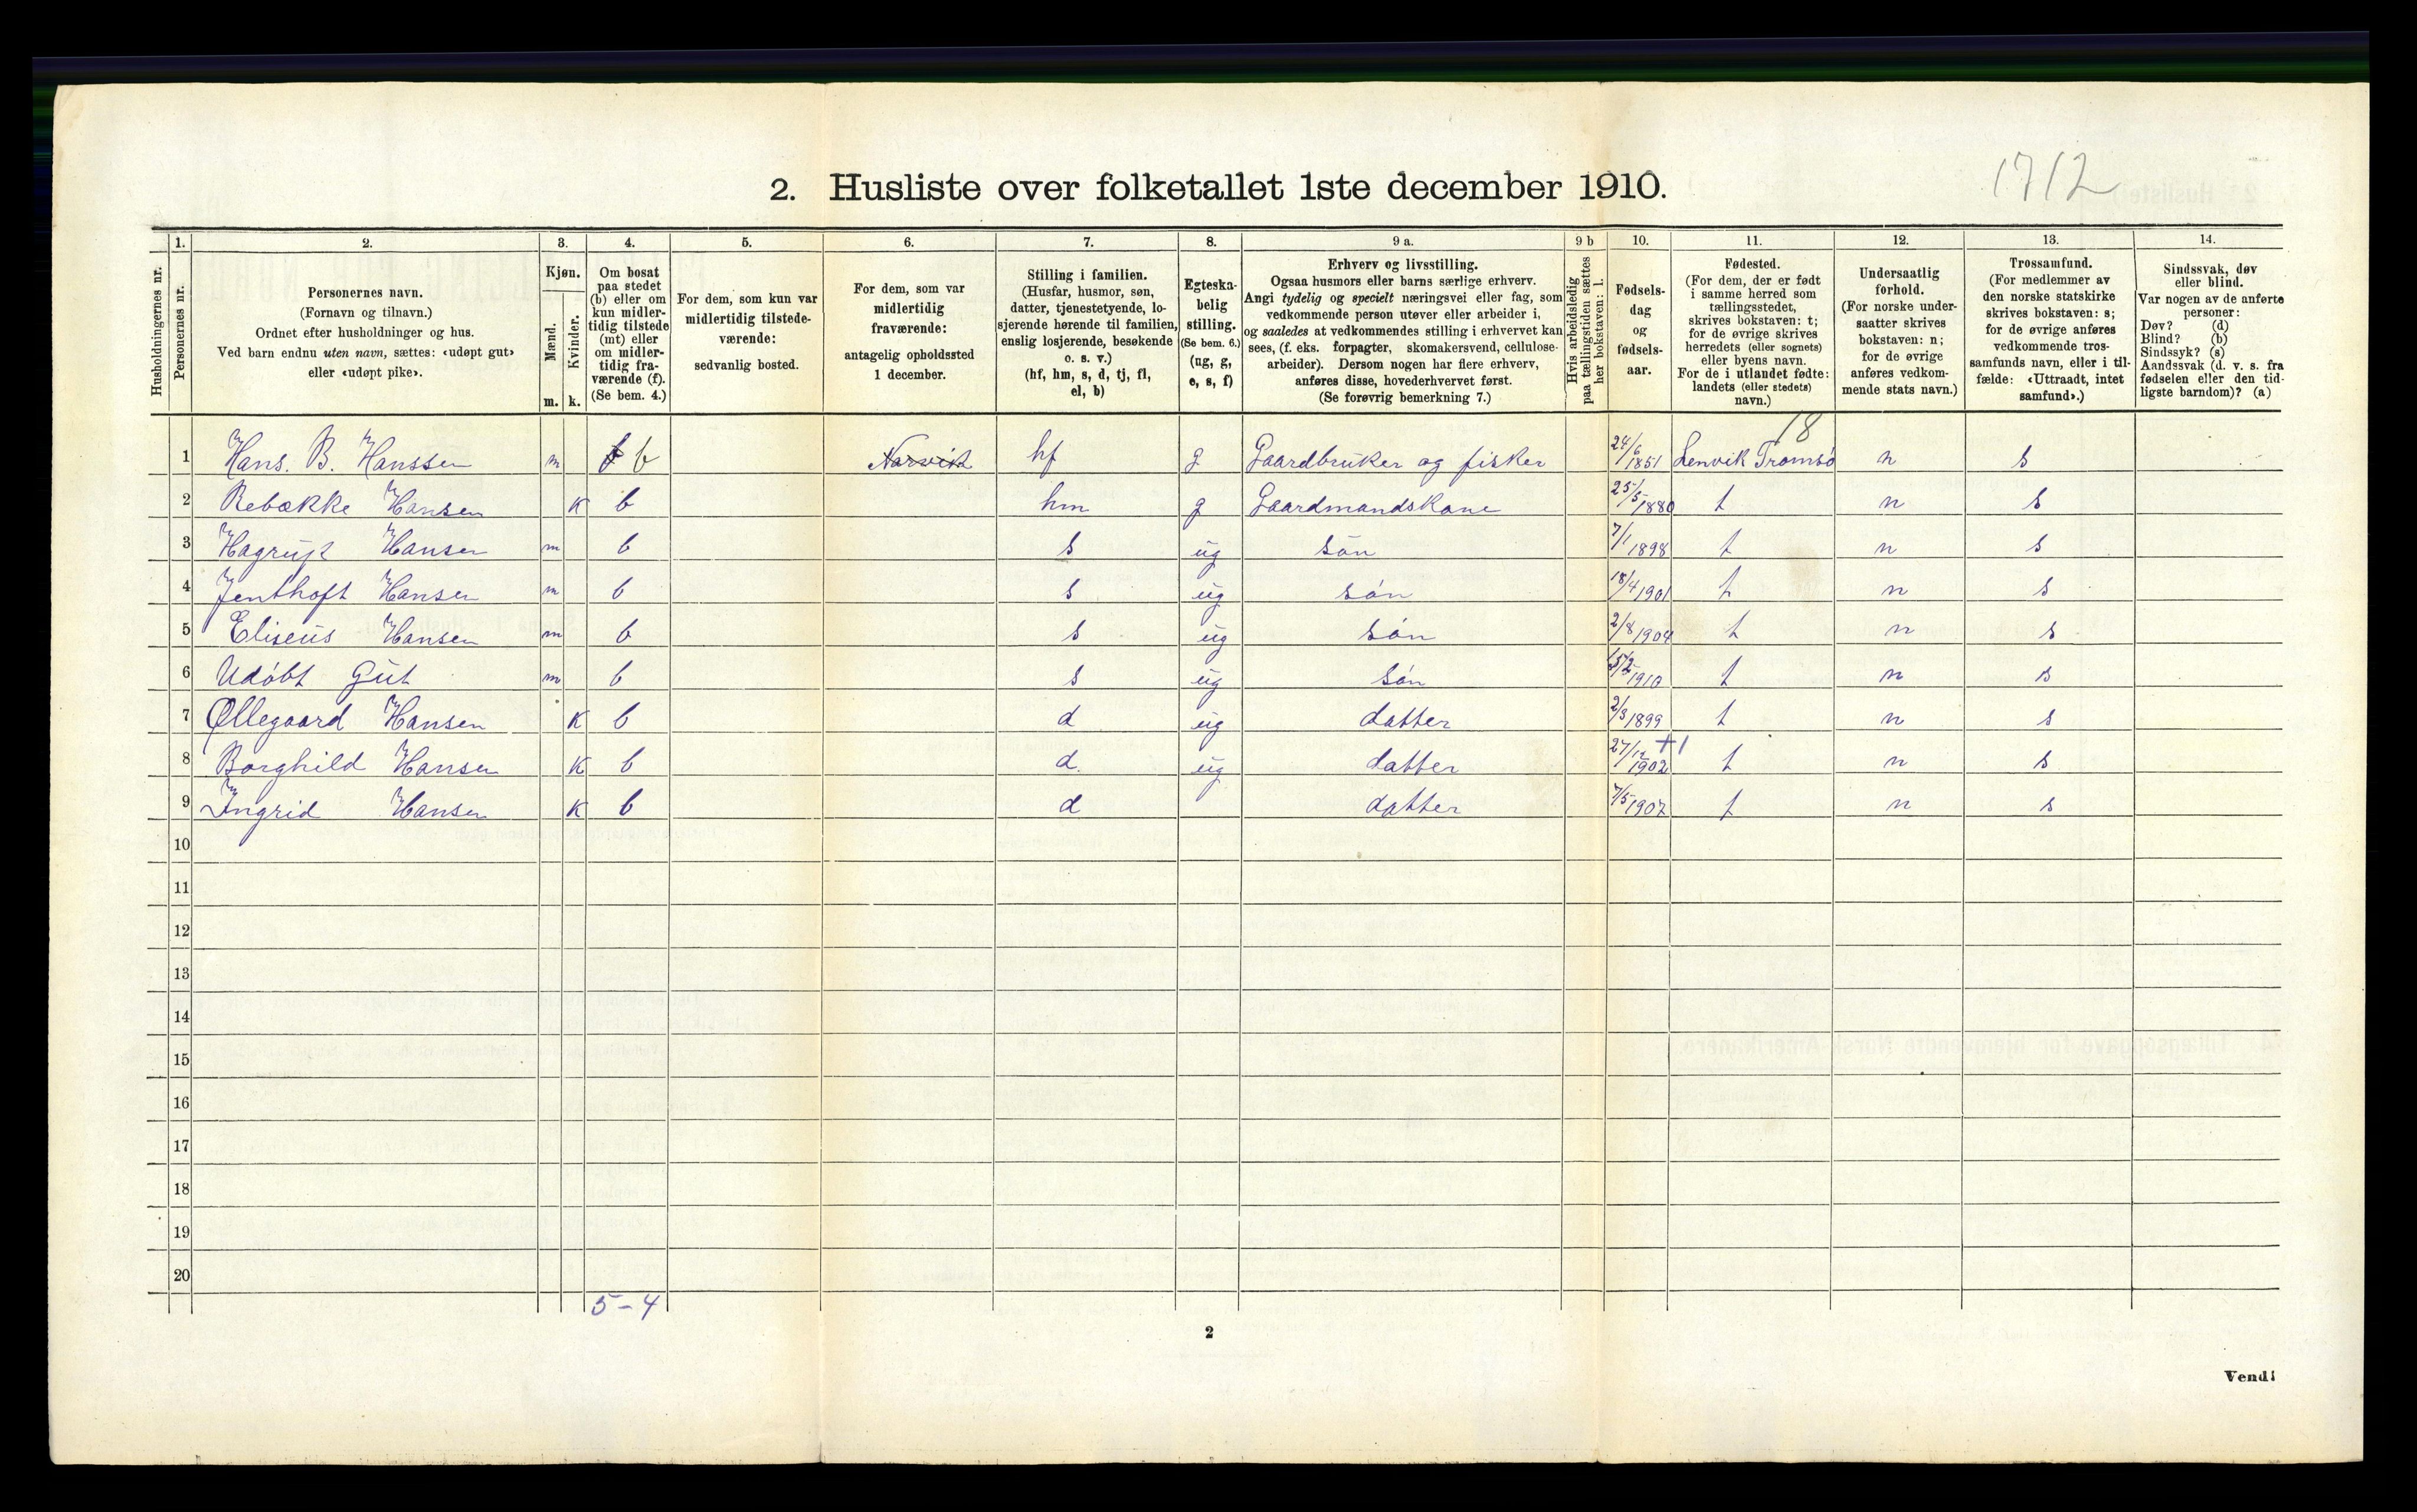 2. Husliste over folketallet 1ste december 1910.
1712
Husholdningernes nr.
1. 2. 3. 4. 5. 6. 7. 8. 9 a. 9 b 10. 11. 12. 13. 14.
Personernes nr.
Personernes navn.
(Fornavn og tilnavn.)
Ordnet efter husholdninger og hus.
Ved barn endnu uten navn, sættes: «udøpt gut»
eller «udøpt pike».
Kjøn.
Mænd.
Kvinder.
m. k.
Om bosat
paa stedet
(b) eller om
kun midler-
tidig tilstede
(mt) eller
om midler-
tidig fra-
værende (f).
(Se bem. 4.)
For dem, som kun var
midlertidig tilstede-
værende:
sedvanlig bosted.
For dem, som var
midlertidig
fraværende:
antagelig opholdssted
1 december.
Stilling i familien.
(Husfar, husmor, søn,
datter, tjenestetyende, lo-
sjerende hørende til familien,
enslig losjerende, besøkende
o. s. v.)
(hf, hm, s, d, tj, fl,
el, b)
Egteska-
belig
stilling.
(Se bem. 6.)
(ug, g,
e, s, f)
Erhverv og livsstilling.
Ogsaa husmors eller barns særlige erhverv.
Angi tydelig og specielt næringsvei eller fag, som
vedkommende person utøver eller arbeider i,
og saaledes at vedkommendes stilling i erhvervet kan
sees, (f. eks. forpagter, skomakersvend, cellulose-
arbeider). Dersom nogen har flere erhverv,
anføres disse, hovederhvervet først.
(Se forøvrig bemerkning 7.)
Hvis arbeidsledig
paa tællingstiden sættes
her bokstaven: l.
Fødsels-
dag
og
fødsels-
aar.
Fødested.
(For dem, der er født
i samme herred som
tællingsstedet,
skrives bokstaven: t;
for de øvrige skrives
herredets (eller sognets)
eller byens navn.
For de i utlandet fødte:
landets (eller stedets)
navn.)
Undersaatlig
forhold.
(For norske under-
saatter skrives
bokstaven: n;
for de øvrige
anføres vedkom-
mende stats navn.)
Trossamfund.
(For medlemmer av
den norske statskirke
skrives bokstaven: s;
for de øvrige anføres
vedkommende tros-
samfunds navn, eller i til-
fælde: «Uttraadt, intet
samfund».)
Sindssvak, døv
eller blind.
Var nogen av de anførte
personer:
Døv? (d)
Blind? (b)
Sindssyk? (s)
Aandssvak (d. v. s. fra
fødselen eller den tid-
ligste barndom)? (a)
18
1 Hans. B. Hanssen m f b Narvik hf g Gaardbruker og fisker 24/6 1851 Lenvik Tromsø n s
2 Rebække Hansen k b hm g Gaardmandskone 25/5 1880 t n s
3 Hagrup Hansen m b s ug søn 7/1 1898 t n s
4 Jenthoft Hansen m b s ug søn 18/4 1901 t n s
5 Eliseus Hansen m b s ug søn 2/8 1904 t n s
6 Udøbt Gut m b s ug søn 15/2 1910 t n s
7 Øllegaard Hansen k b d ug datter 2/3 1899 t n s
8 Borghild Hansen k b d. ug datter 27/12 1902 +1 t n s
9 Ingrid Hansen k b d datter 7/5 1907 t n s
10
11
12
13
14
15
16
17
18
19
20
5-4
2
Vend!